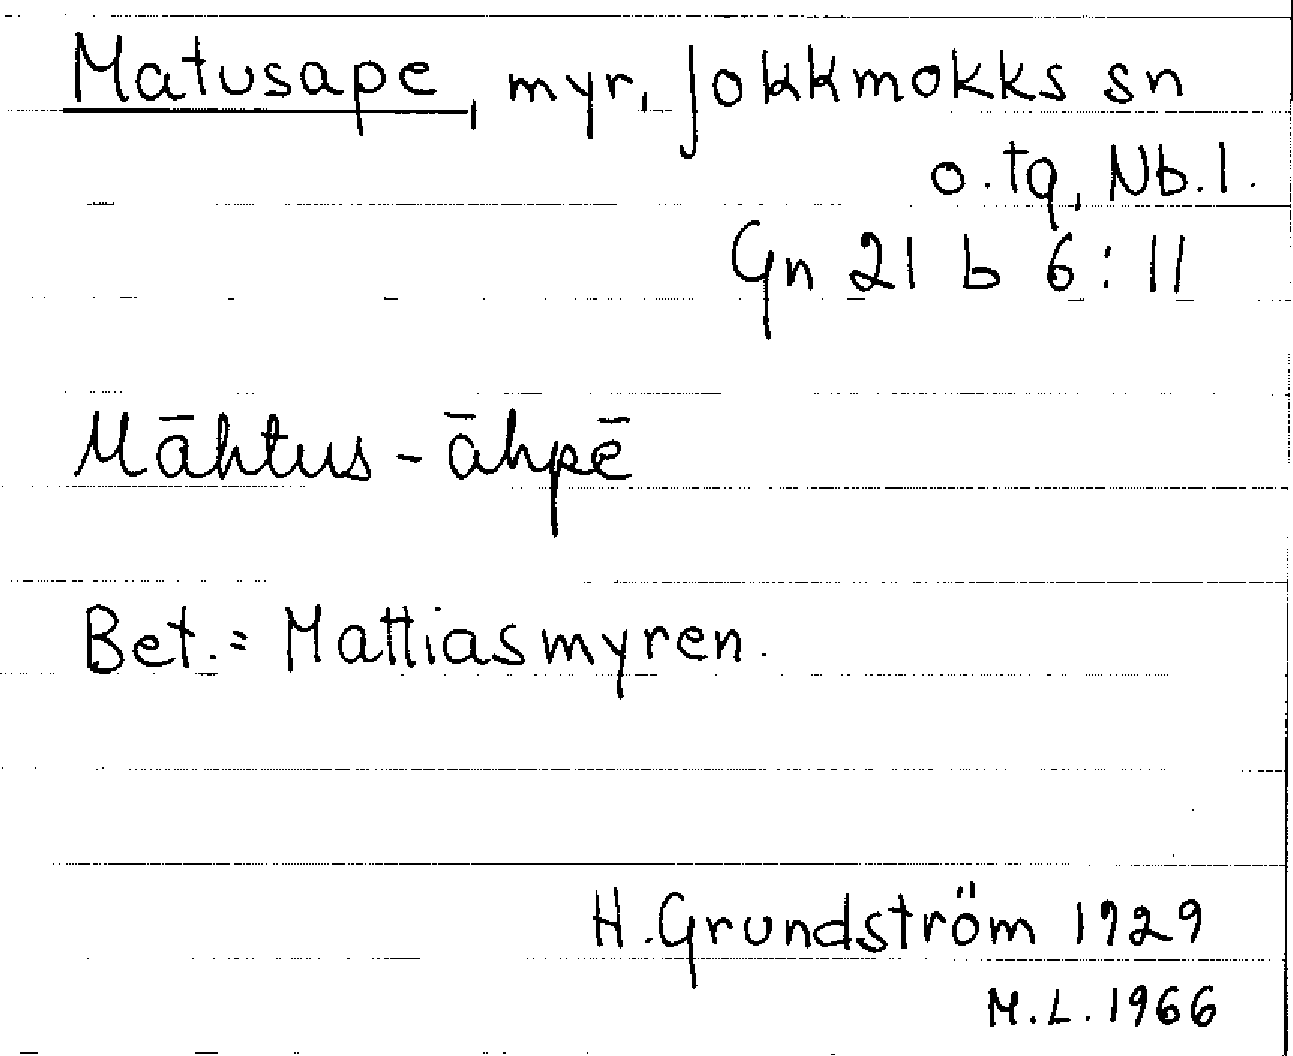 Matusape, myr, Jokkmokks sn
o. tg, Nb. l.
Gn 21 b 6:11
Māhtus-āhpē
Bet.= Mattiasmyren.
H. Grundström 1929
M.L. 1966